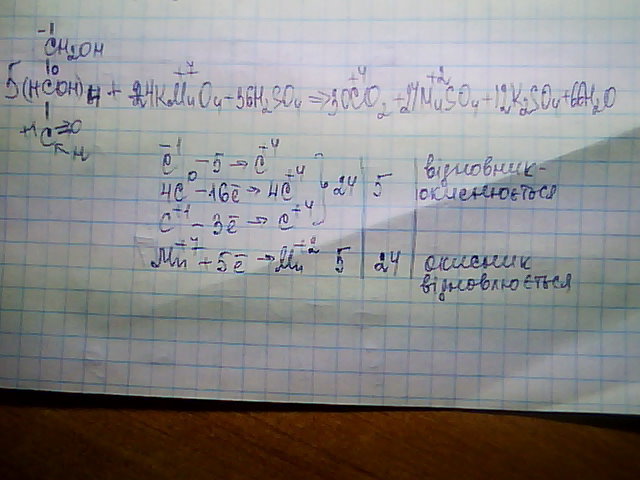 -1
CH2OH
10 +7 +4 +2
5(HCOH)4 + 24KMnO4-36H2SO4 =>30CO2 +24MnSO4 +12K2SO4+66H2O
+1C=O
H
C-1 - 5 → C+4
4C0 -16ē→ 4C+4 24 5 відновник-
окиснюється
C+1 - 3ē → C+4
Mn+7 + 5ē →Mn+2 5 24 окисник
відновлюється